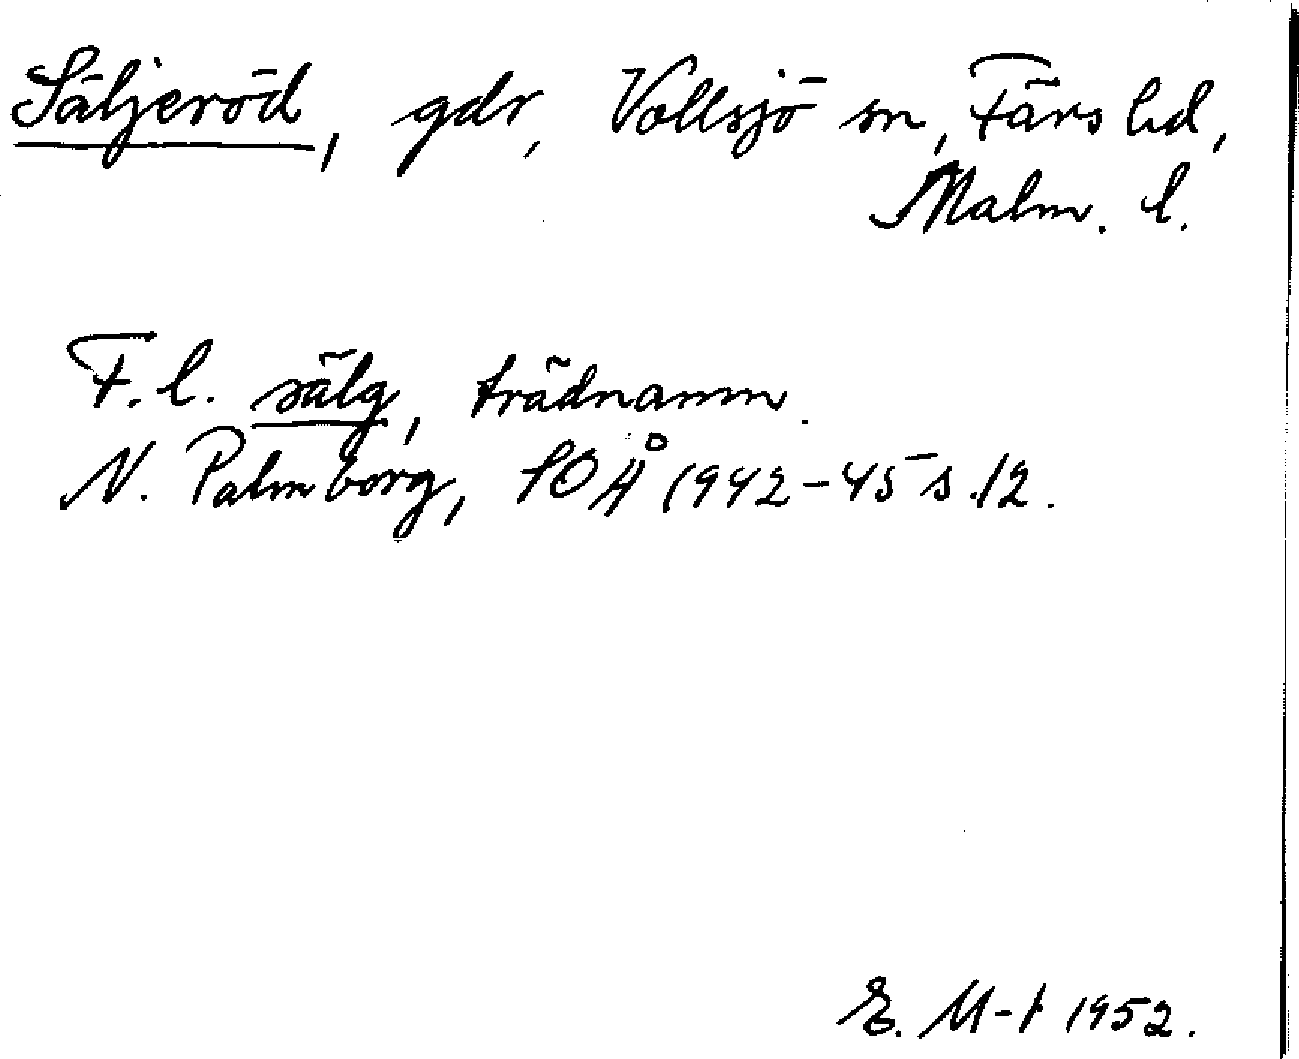 Säljeröd, gdr, Vollsjö sn, Färs hd,
Malm. l.
F.l. sälg, trädnamn.
N. Palmborg, SOÅ 1942-45 s.12.
E. M-t 1952.